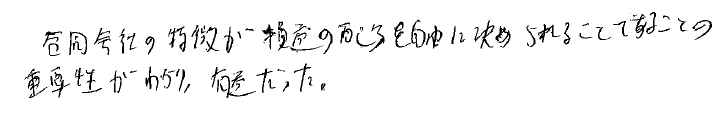 合同会社の特徴が損益の配分を自由に決められることであることの
重要性がわかり、有益だった。